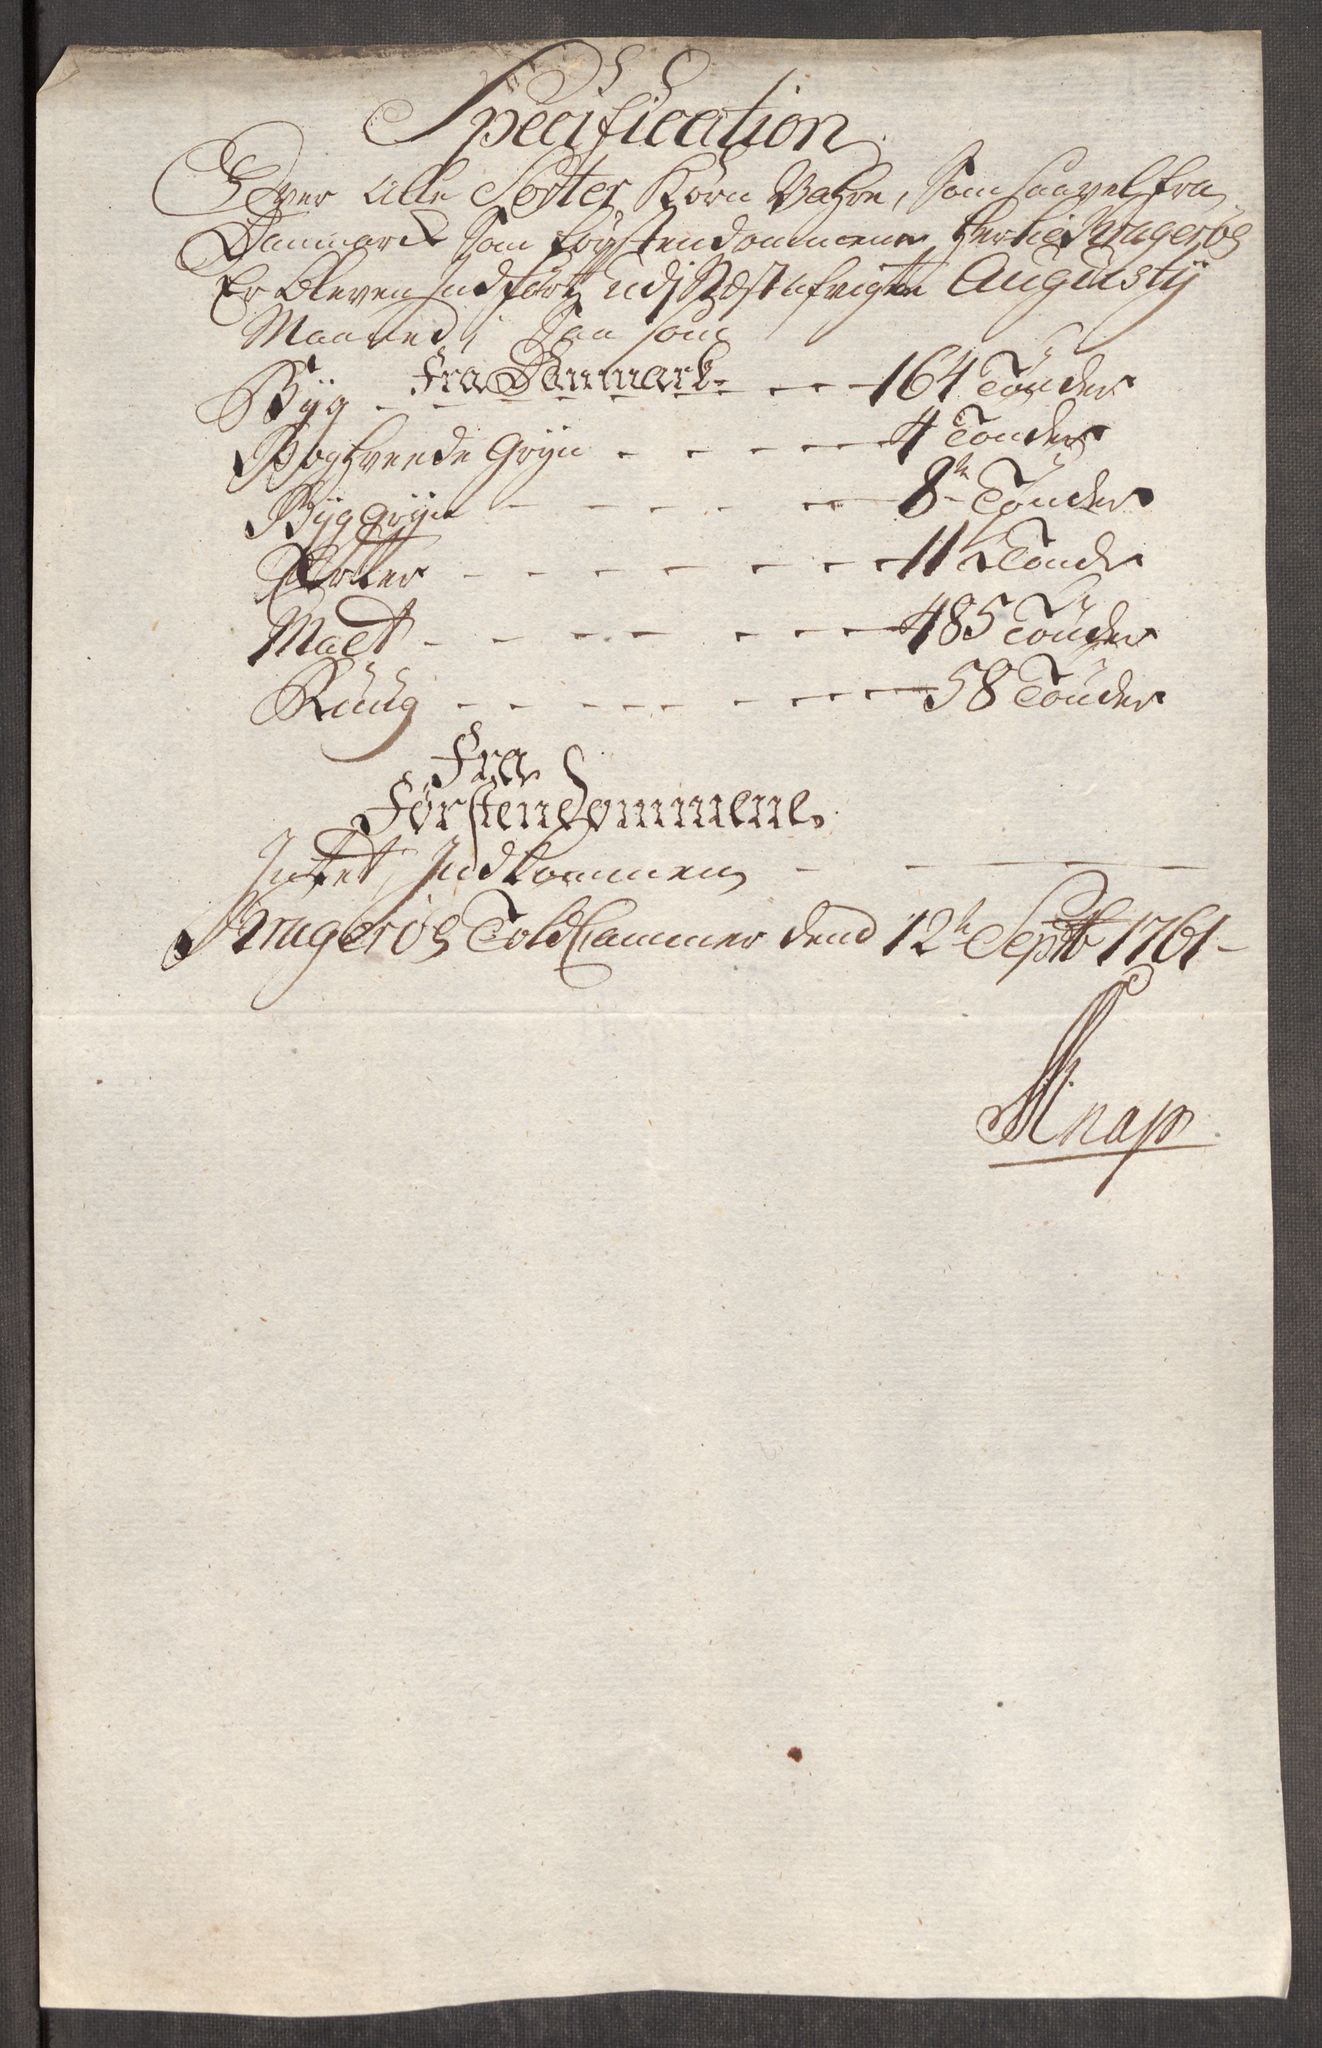 Specification
Over alle Sorter Korn Vahre, som saavel fra
Danmarck som Førstendommene hertil Kragerøe
Er bleven Indført udj Næstafvigte Augustij
Maaned, Saa som
Fra Danmark
Byg - - - - - - 164 Tönder
Boghveede Gryn - - - - - 4 Tönder
Byggryn - - - - - - 8 Tönder
Ærter - - - - - - - 11 Tönder
Malt - - - - - - - 485 Tönder
Ruug - - - - - - - 58 Tönder
Fra
Førstendommene
Intet Indkommen - - - - -
Kragerøe Told Cammer dend 12te Septb 1761 -
Knap